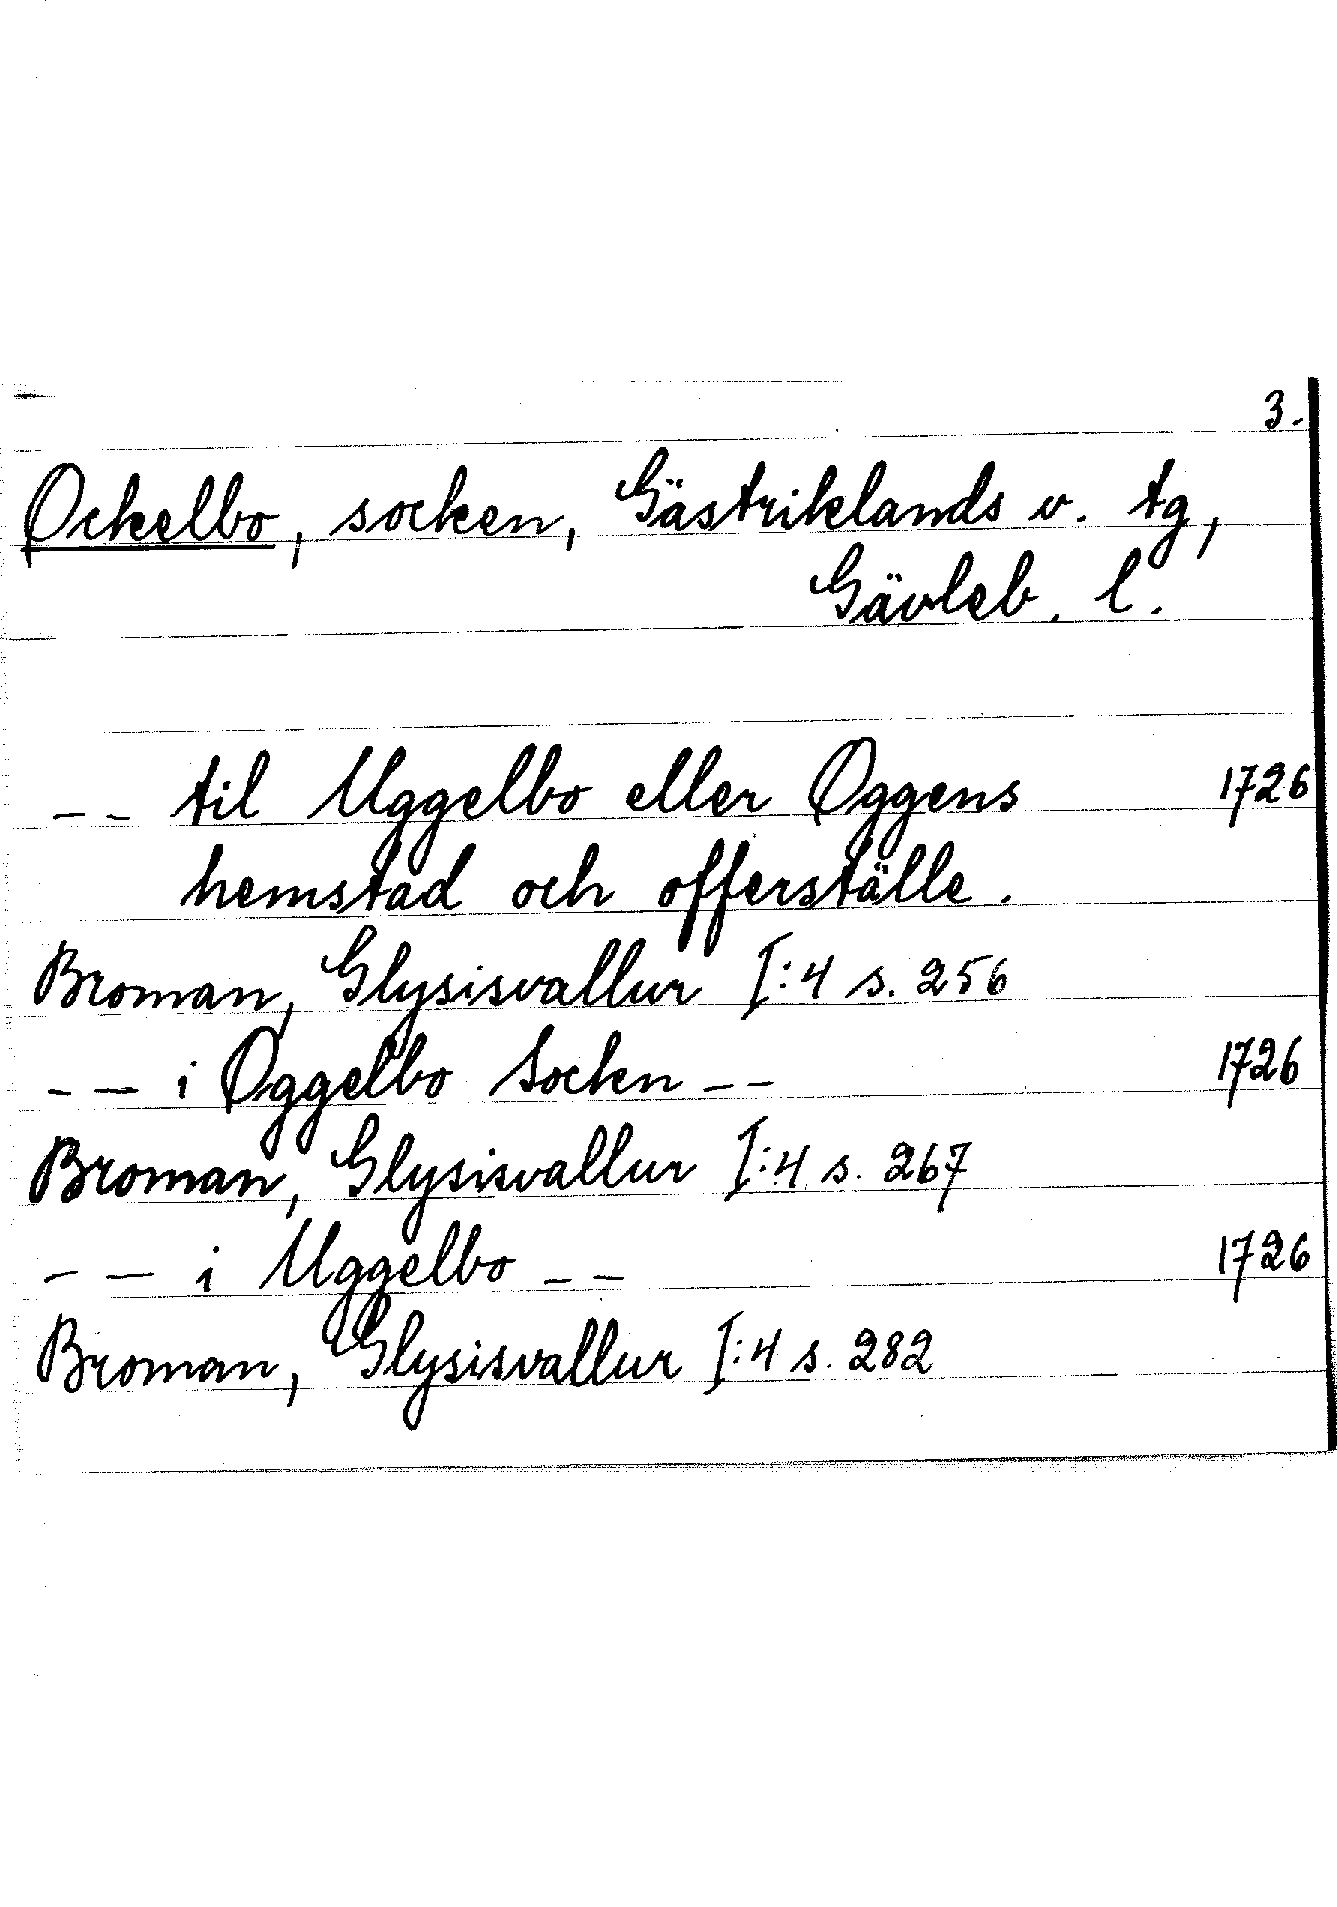 3.
Ockelbo, socken, Gästriklands v. tg,
Gävleb. l.
-- til Uggelbo eller Oggens 1726
hemstad och offerställe.
Broman, Glysisvallur I:4 s. 256
-- i Oggelbo Sockn -- 1726
Broman, Glysisvallur I:4 s. 267
-- i Uggelbo -- 1726
Broman, Glysisvallur I:4 s. 282